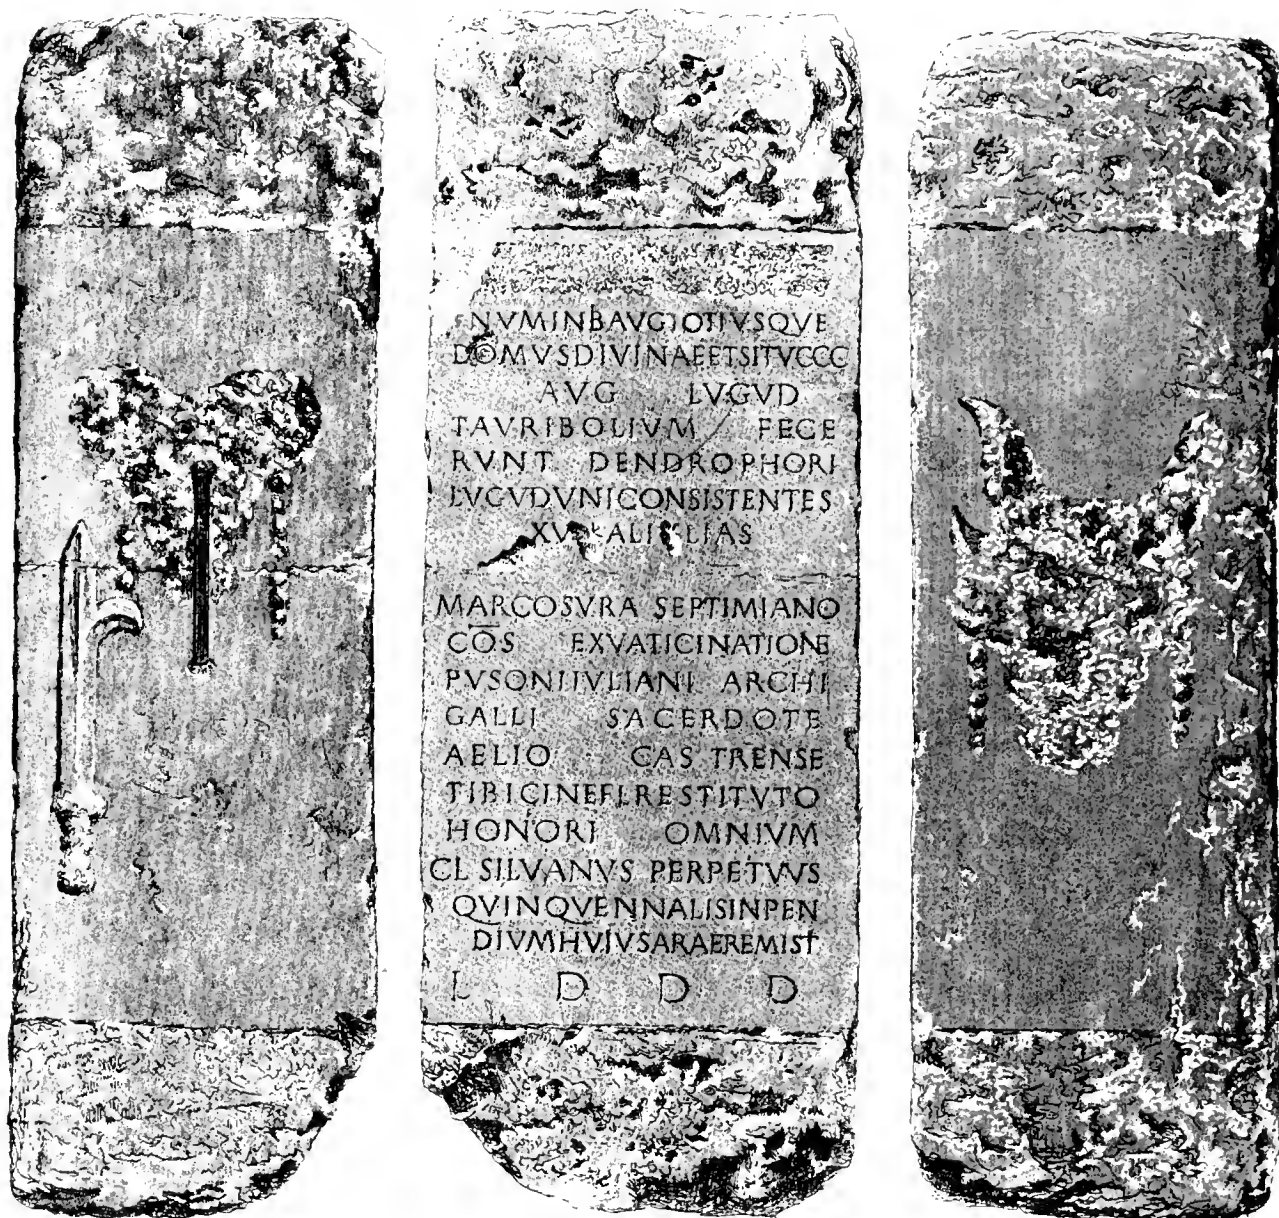 NVMINBAVGTOTIVSQVE
DOMVSDIVINAEETSITVCCC
AVG LVGVD
TAVRIBOLIVM FECE
RVNT DENDROPHORI
LVGVDVNICONSISTENTES
MARCOSVRA SEPTIMIANO
COS EXVATICINATIONE
PVSONIIVLIANI ARCHI
GALLI SACERDOTE
AELIO CASTRENSE
TIBICINEFLRESTITVTO
HONORI OMNIVM
CL SILVANVS PERPETVVS
QVINQVENNALISINPEN
DIVMHVIVSARAEREMIST
L D D D